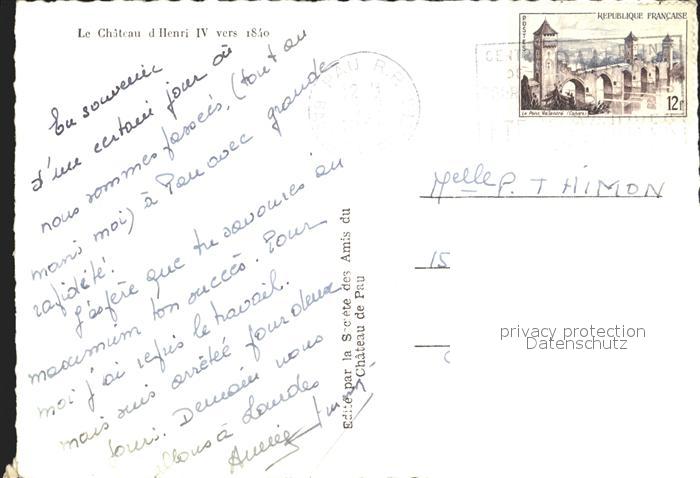 Le Château d'Henri IV vers 1840
En souvenir
d'une certain jour où
nous sommes passés, (tout au
mais moi) à Pau avec grande
rapidité.
J'espère que tu savoures au
maximum ton succès. Pour
moi j'ai repris le travail.
mais suis arrêtée pour deux
jours. Demain nous
allons à Lourdes
Edité par la Société des Amis du
Château de Pau
POSTES
REPUBLIQUE FRANÇAISE
12F
Le Pont Valentré (Cahors)
PAU R.P.
Melle P. THIMON
15
privacy protection
Datenschutz